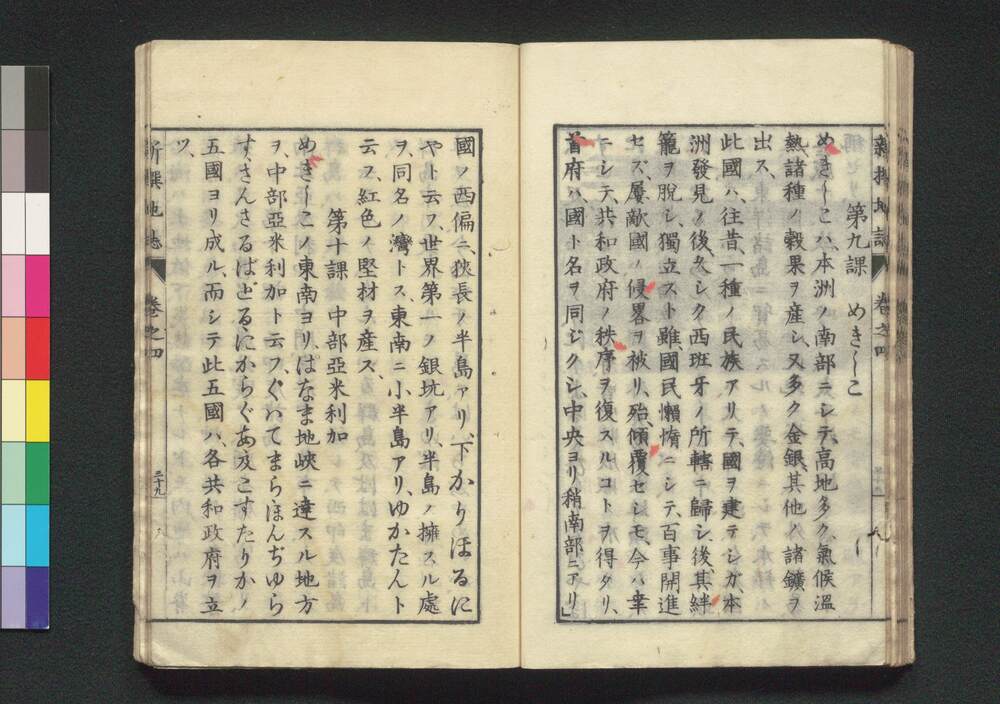 新撰地誌 卷之四
第九課 めきしーこ
めきしーこハ、本洲ノ南部ニシテ、高地多ク、氣候溫
熱、諸種ノ穀果ヲ産シ、又多ク金銀、其他ノ諸鑛ヲ
出ス、
此國ハ、往昔一種ノ民族アリテ、國ヲ建テシガ、本
洲發見ノ後、久シク西班牙ノ所轄ニ歸シ、後、其絆
籠ヲ脫シ、獨立スト雖、國民懶惰ニシテ、百事開進
セズ、屢敵國ノ侵畧ヲ被リ、殆、傾覆セシモ、今ハ幸
ニシテ、共和政府ノ秩序ヲ復スルコトヲ得タリ、
首府ハ、國ト名ヲ同ジクシ、中央ヨリ稍南部ニアリ」
國ノ西偏ニ、狹長ノ半島アリ、下かりほるに
やト云フ、世界第一ノ銀坑アリ、半島ノ擁スル處
ヲ、同名ノ灣トス、東南ニ小半島アリ、ゆかたんト
云フ、紅色ノ堅材ヲ産ス、
第十課 中部亞米利加
めきしーこノ東南ヨリ、ぱなま地峽ニ達スル地方
ヲ、中部亞米利加ト云フ、ぐわてまらほんぢゆら
す、さんさるばどるにからぐあ及こすたりかノ
五國ヨリ成ル、而シテ此五國ハ、各共和政府ヲ立
ツ、
新撰地誌 卷之四 二十九